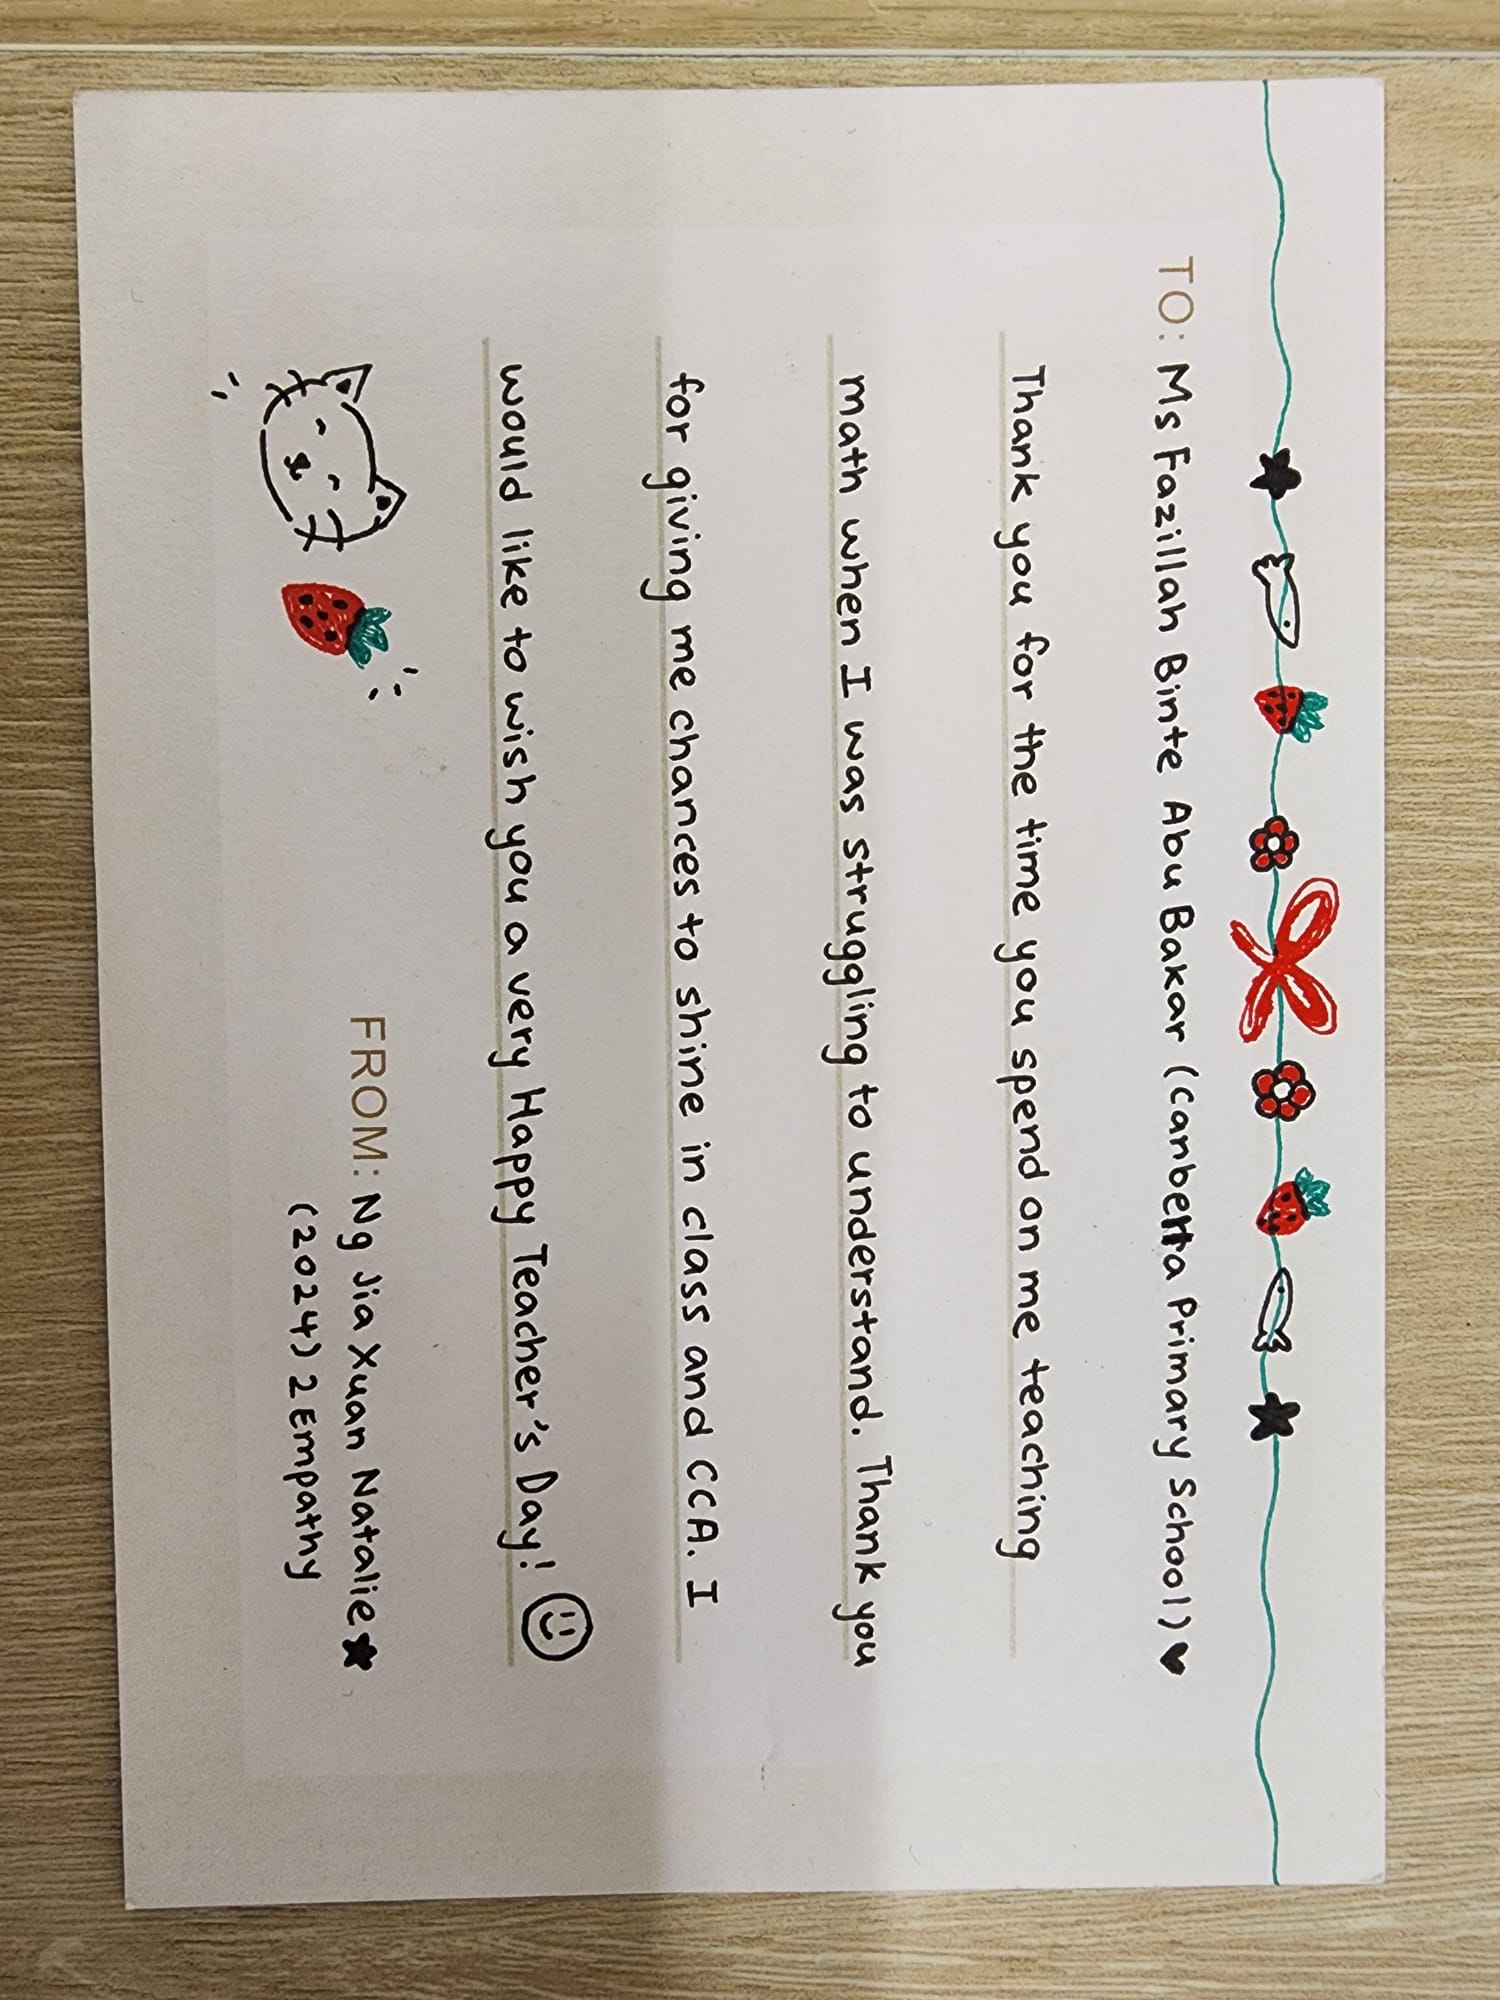 TO: Ms Fazillah Binte Abu Bakar (Canberra Primary School) ♥
Thank you for the time you spend on me teaching
math when I was struggling to understand. Thank you
for giving me chances to shine in class and CCA. I
would like to wish you a very Happy Teacher's Day! ☺
FROM: Ng Jia Xuan Natalie ★
(2024) 2 Empathy